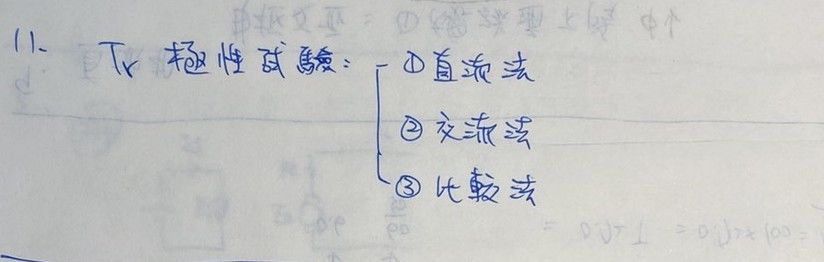 11. Tr 極性試驗: ①直流法
②交流法
③比較法